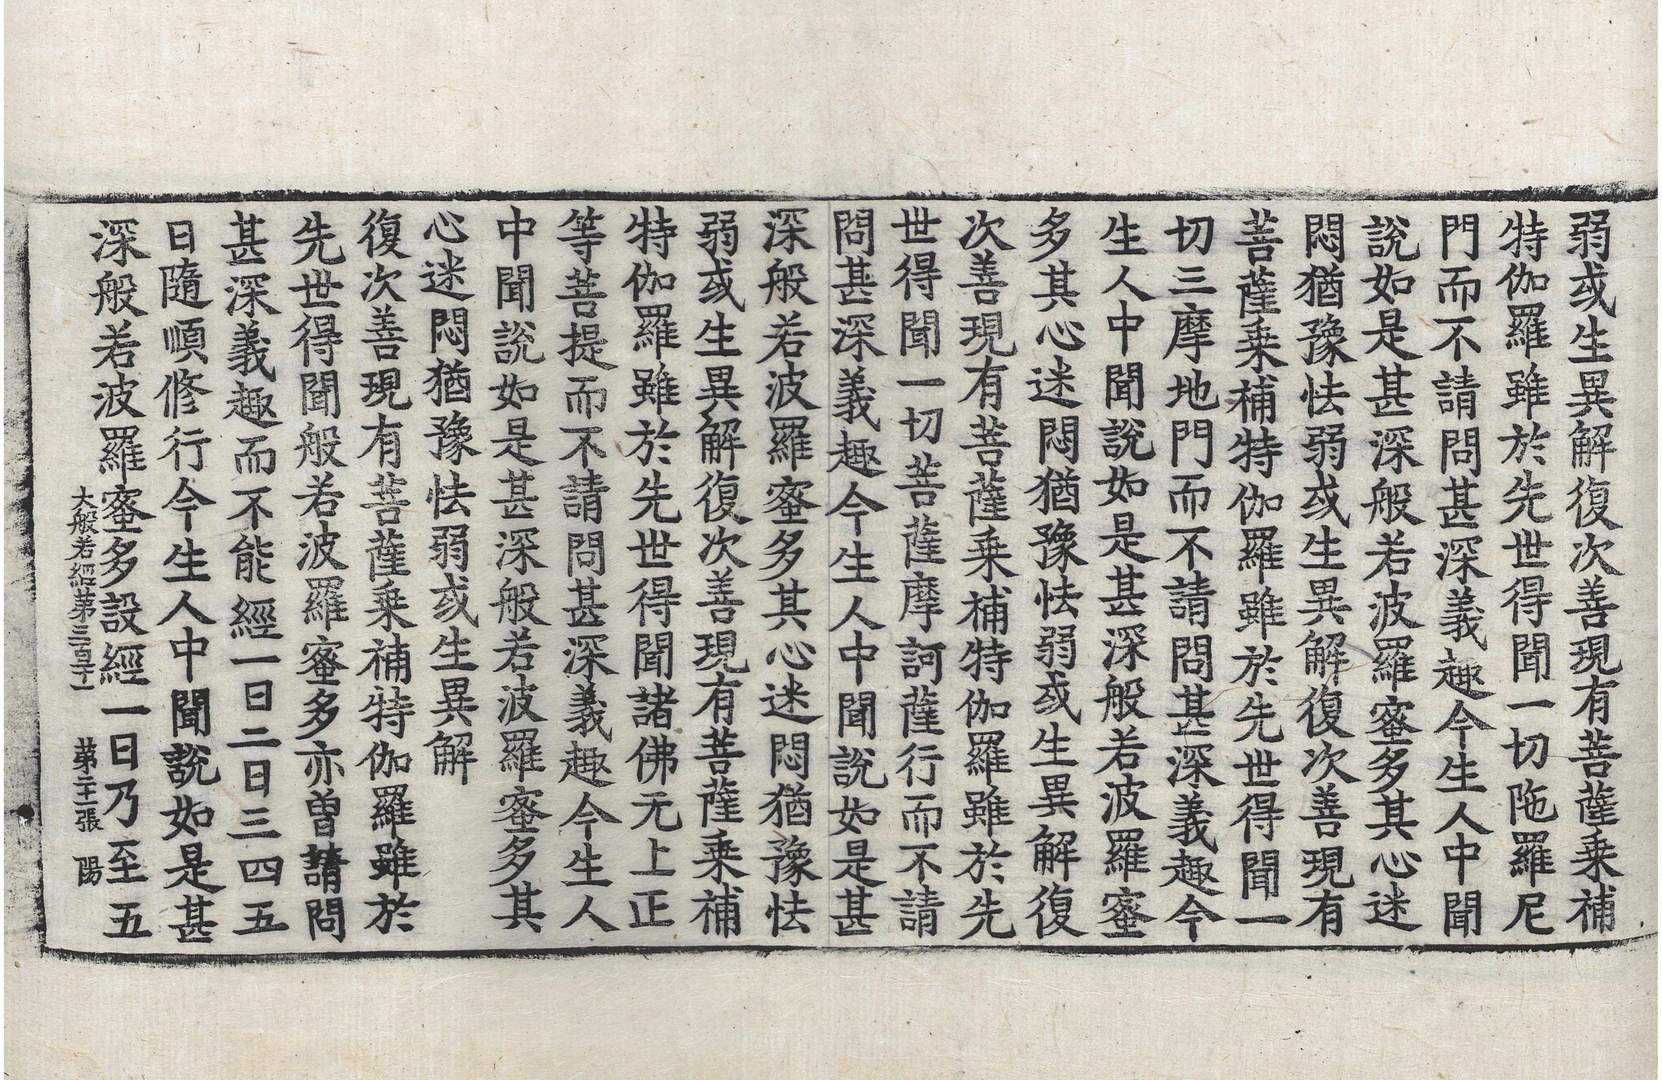 弱或生異解復次善現有菩薩乘補
特伽羅雖於先世得聞一切陁羅尼
門而不請問甚深義趣今生人中聞
說如是甚深般若波羅蜜多其心迷
悶猶豫怯弱或生異解復次善現有
菩薩乘補特伽羅雖於先世得聞一
切三摩地門而不請問甚深義趣今
生人中聞說如是甚深般若波羅蜜
多其心迷悶猶豫怯弱或生異解復
次善現有菩薩乘補特伽羅雖於先
世得聞一切菩薩摩訶薩行而不請
問甚深義趣今生人中聞說如是甚
深般若波羅蜜多其心迷悶猶豫怯
弱或生異解復次善現有菩薩乘補
特伽羅雖於先世得聞諸佛无上正
等菩提而不請問甚深義趣今生人
中聞說如是甚深般若波羅蜜多其
心迷悶猶豫怯弱或生異解
復次善現有菩薩乘補特伽羅雖於
先世得聞般若波羅蜜多亦曾請問
甚深義趣而不能經一日二日三四五
日隨順修行今生人中聞說如是甚
深般若波羅蜜多設經一日乃至五
大般若經第三百十一 第張 陽